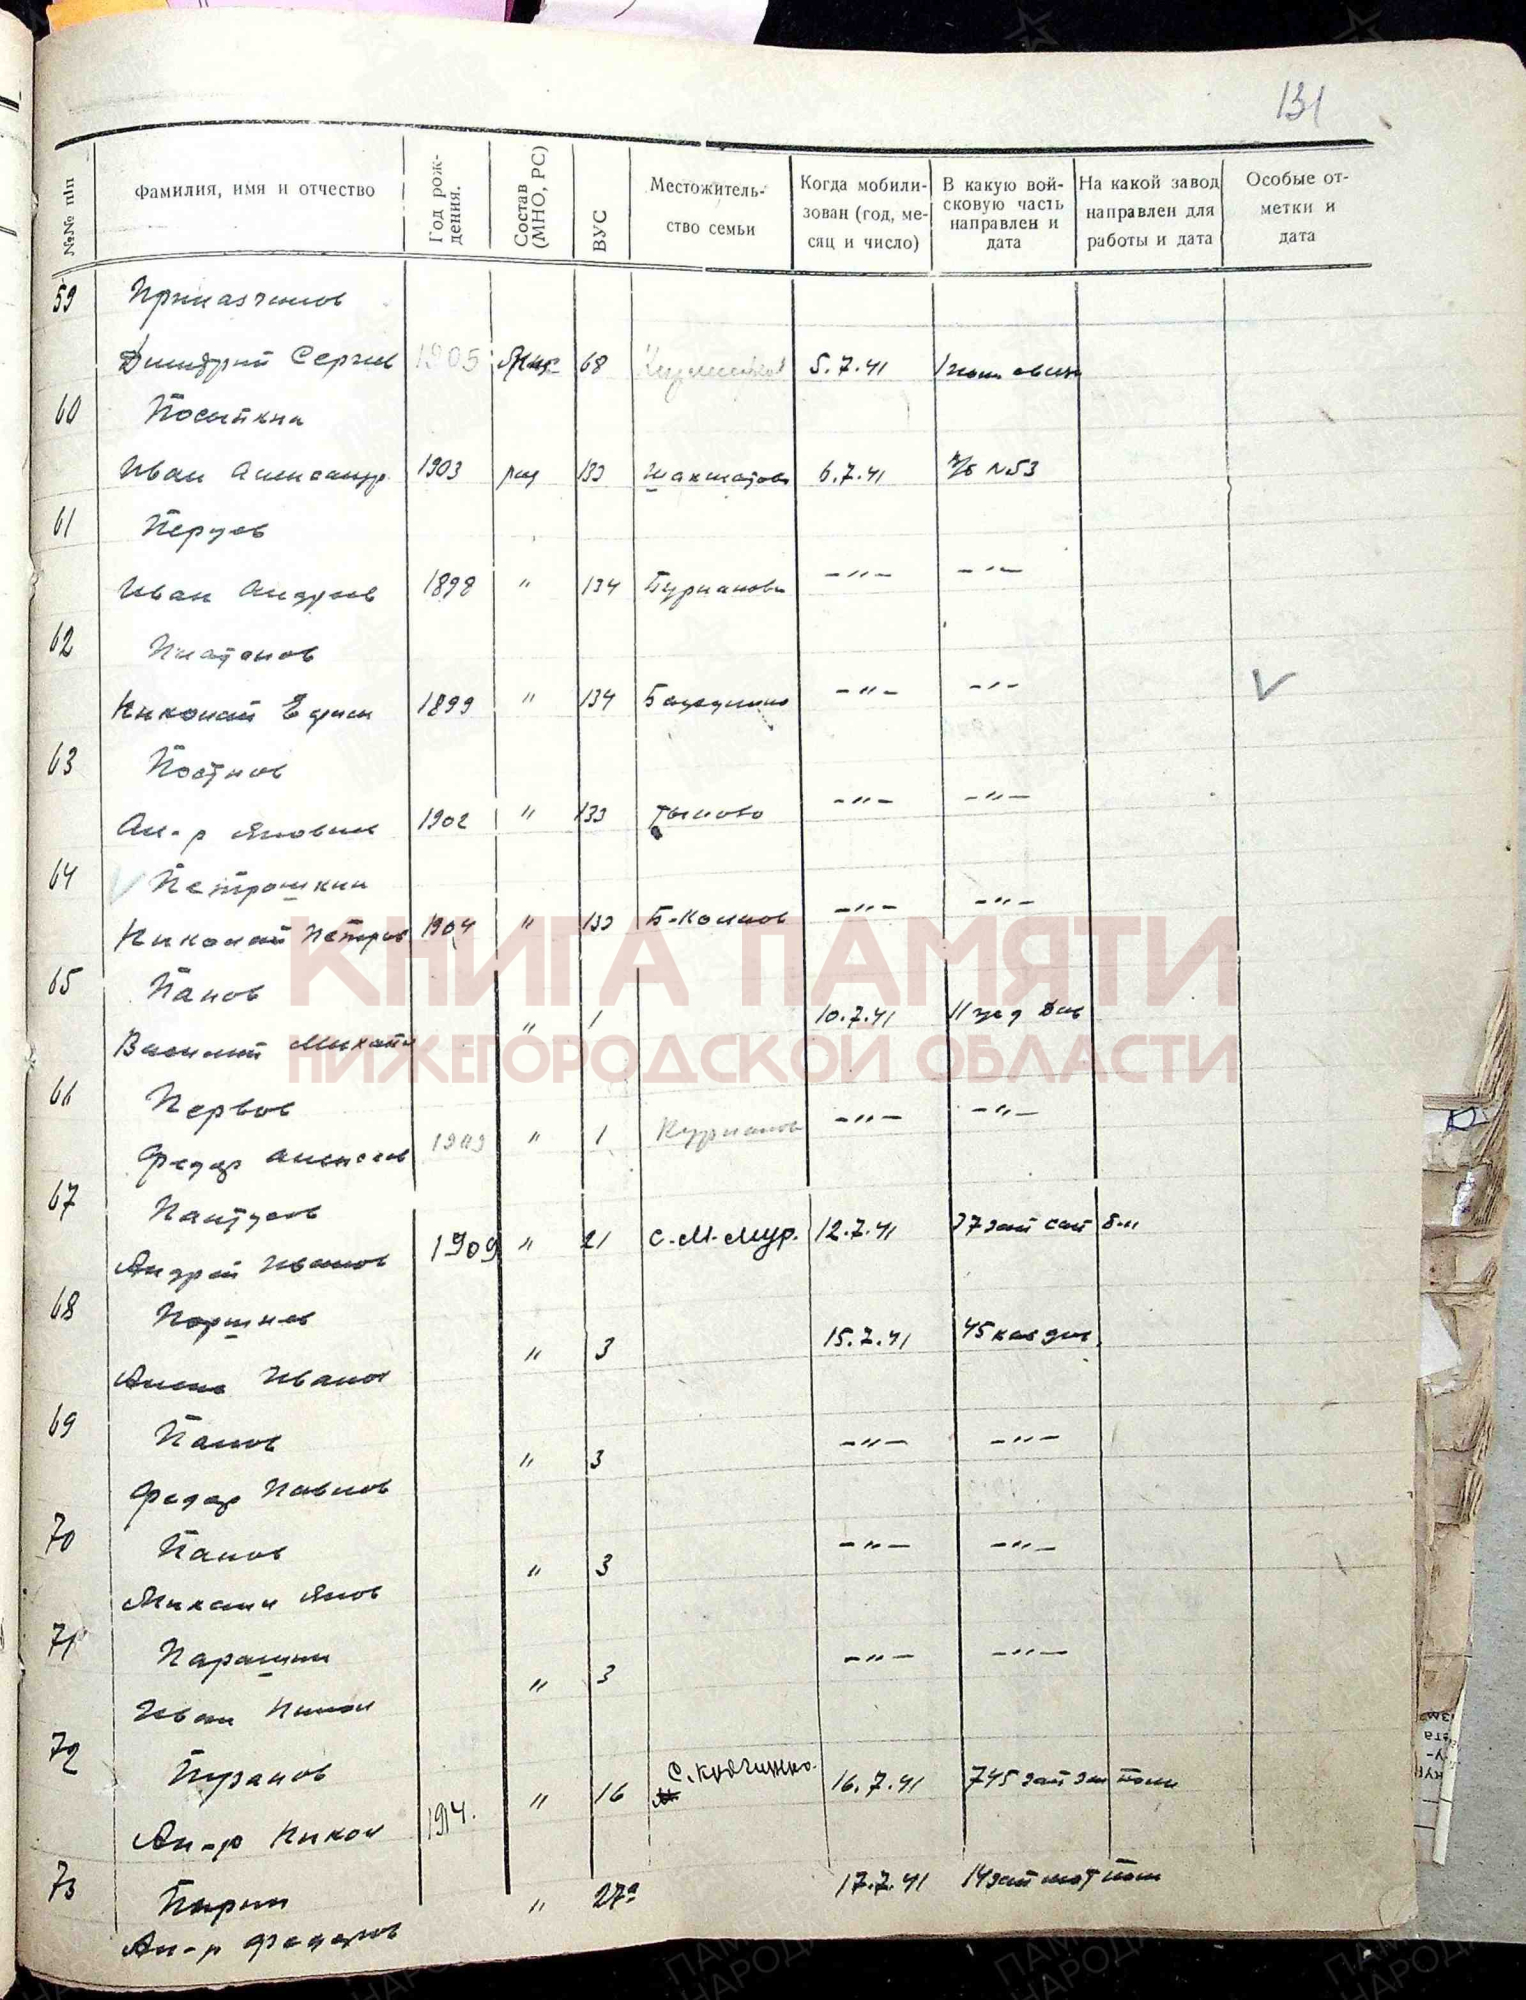 131
№№ п/п
Фамилия, имя и отчество
Год рождения.
Состав (МНО, РС)
ВУС
Местожительство семьи
Когда мобилизован (год, месяц и число)
В какую войсковую часть направлен и дата
На какой завод направлен для работы и дата
Особые отметки и дата
59 Приказчиков
Дмитрий Сергеев 1905 68 5.7.41
60 Посыпкин
Иван Александр. 1903 ряд 133 Шахматово 6.7.41 №53
61 Перцев
Иван Андреев 1898 " 134 -"- -"-
62 Платонов
Николай Ефим 1899 " 134 -"- -"- V
63 Постнов
Ал-р Яковлев 1902 " 133 -"- -"-
64 V Петрошкин
Николай Петров 1904 " 133 -"- -"-
КНИГА ПАМЯТИ
НИЖЕГОРОДСКОЙ ОБЛАСТИ
65 Панов
Василий Михайл " 1 10.7.41
66 Первов
Федор Алексеев " 1 -"- -"-
67 Пантусов
Андрей Иванов 1909 " 21 с.М-Мур. 12.7.41 37 зап сап б-н
68 Поршнев
Алекс Иванов " 3 15.7.41 45 кав див.
69 Панов
Федор Павлов " 3 -"- -"-
70 Панов
Михаил Яков " 3 -"- -"-
71 Парашин
Иван Никол " 3 -"- -"-
72 Пузанов
Ал-р Никол 1914. " 16 с. Княгинино. 16.7.41 745 зап зен полк
73 Пырин
Ал-р Федоров " 27а 17.7.41 14 зап полк